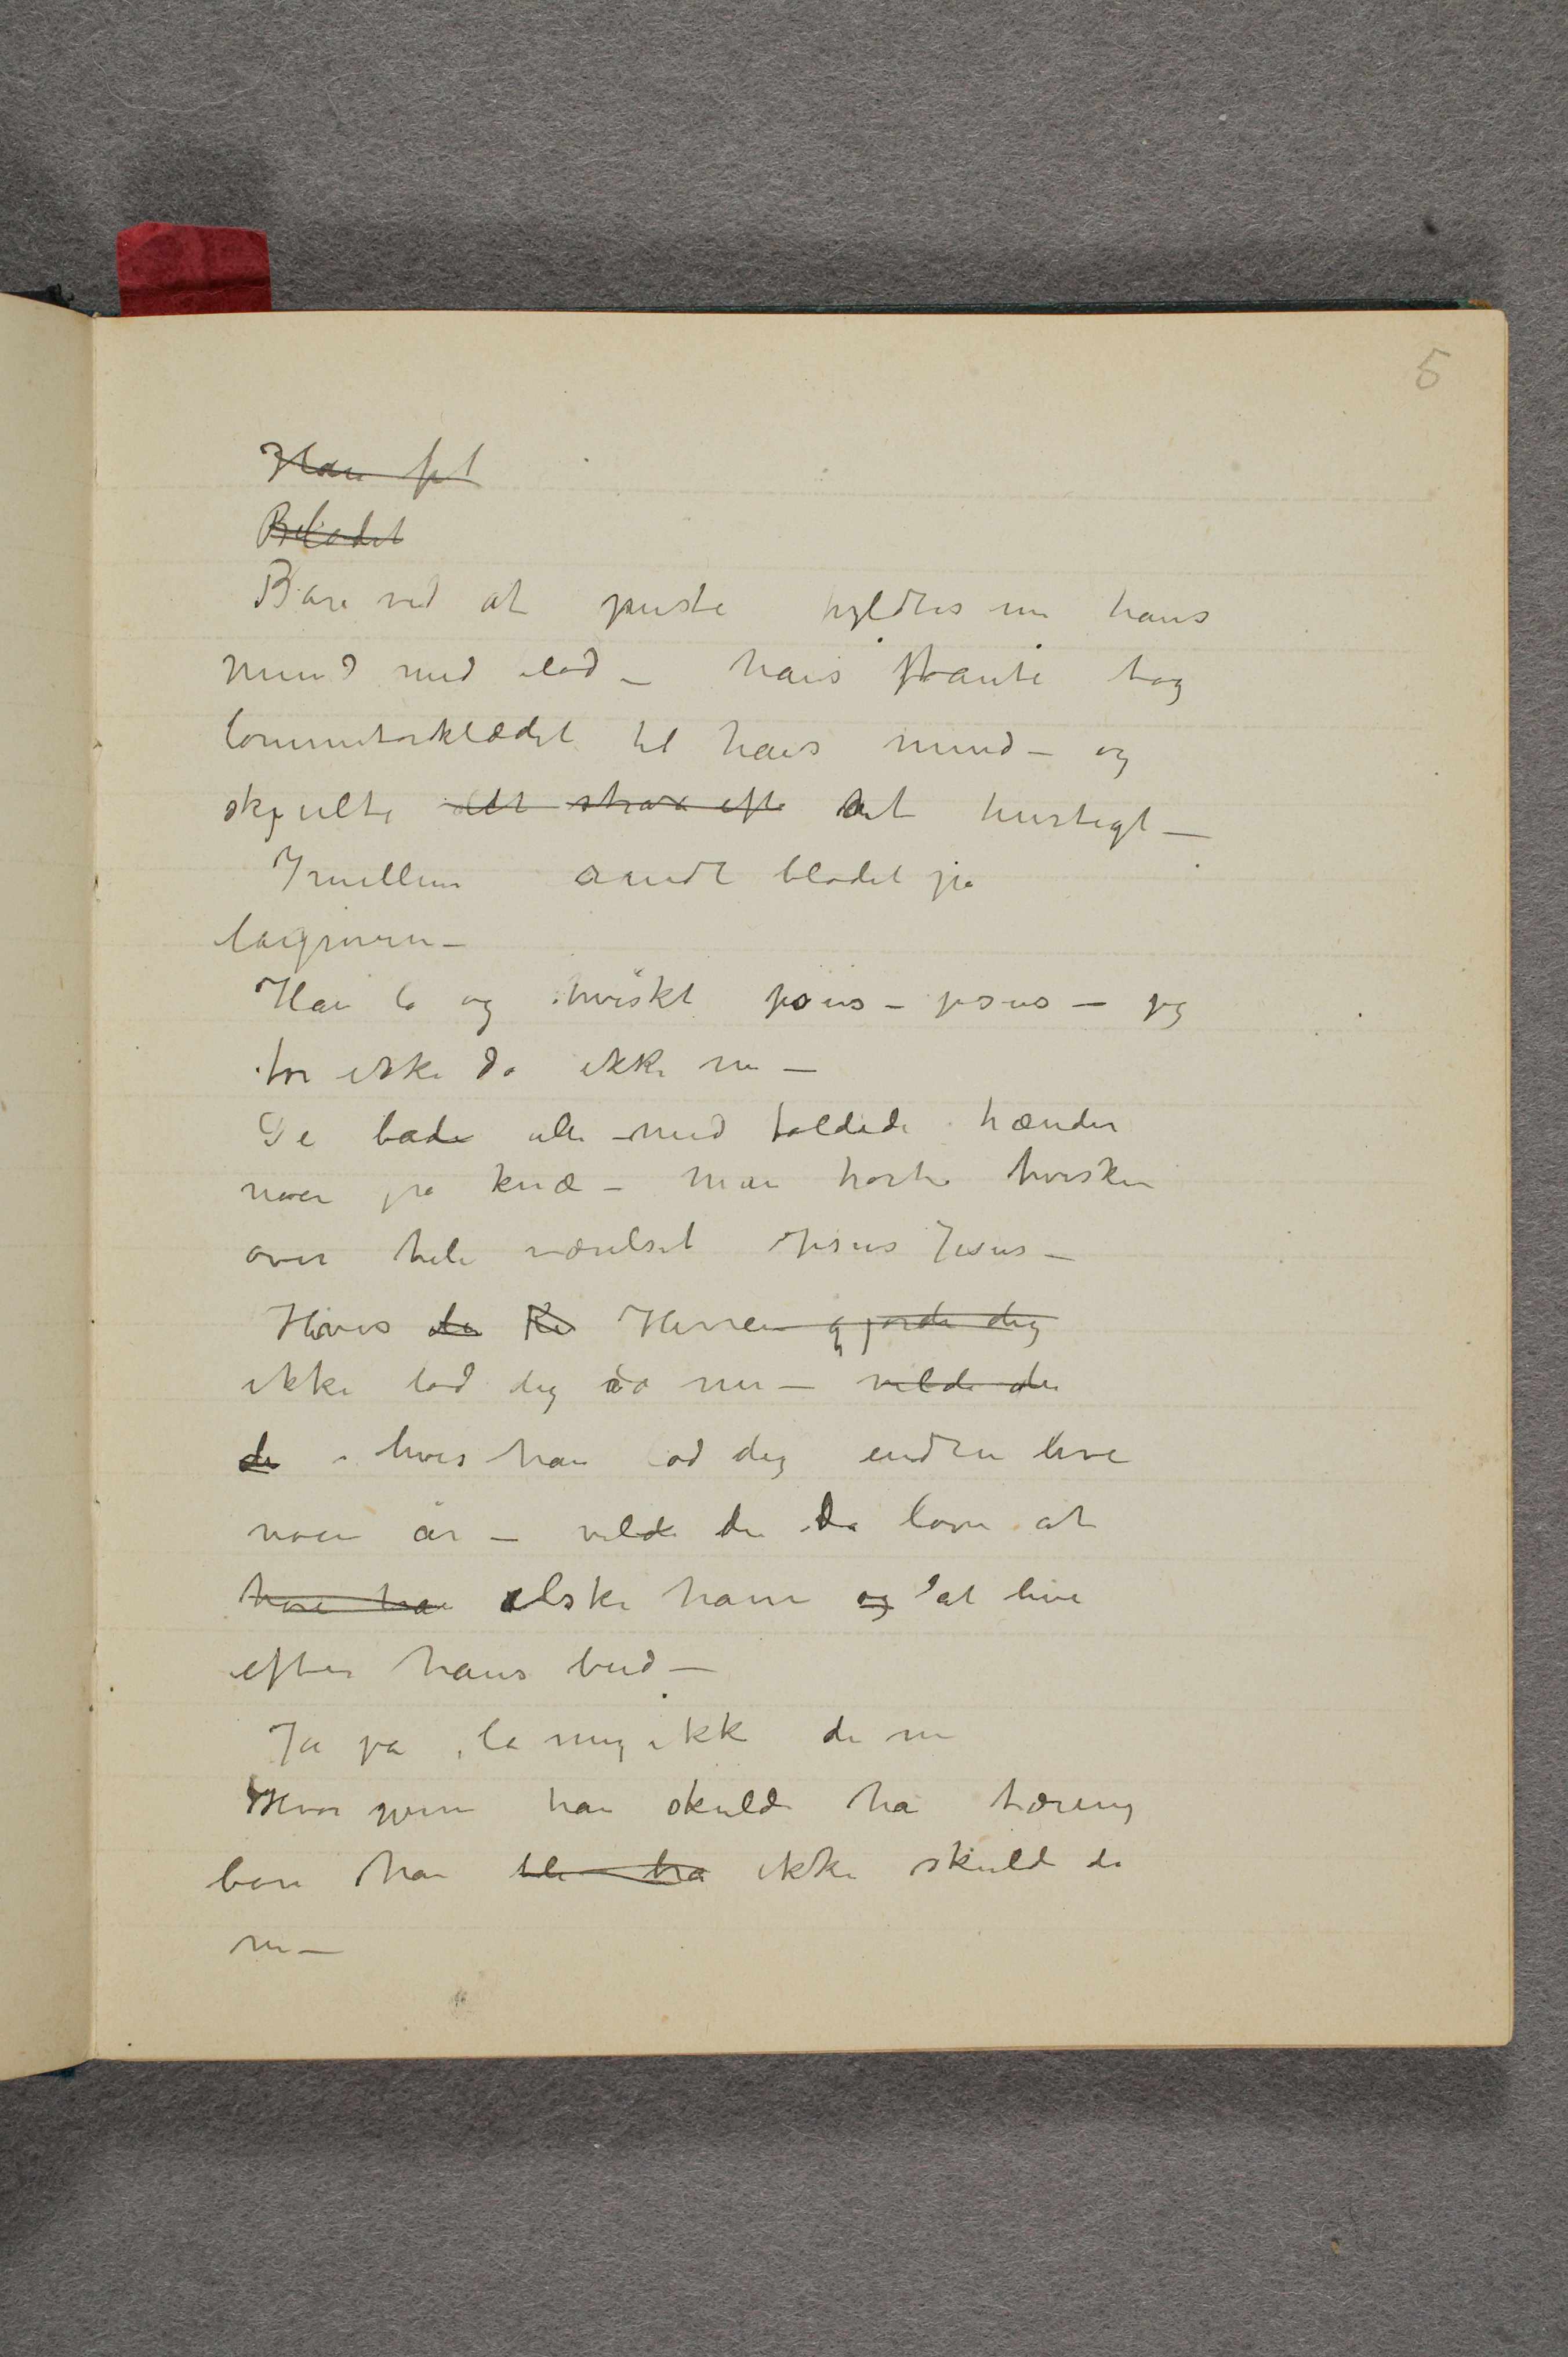 5
Han fik
Blodet
Bare ved at puste fyldtes nu hans
mund med blod – hans tante tog
lommetørklædet til hans mund – og
skjulte det strax efte det hurtigt –
Imellem randt blodet på
Han lå og hviskt jesus – jesus – jeg
tør ikke dø ikke nu –
De bade alle – med foldede hænder
noen på knæ – man hørte hvisken
over hele værelset Jesus Jesus –
Hvis du Ke Herren gjorde dig
ikke lod dig dø nu – vilde du
du – hvis han lod dig endnu leve
noen år – vilde du da love at
høre ha elske ham og at leve
efter hans bud –
Ja ja, la mig ikk dø nu
Hvor gjerne han skulde ha tæring
bare han bli ha ikke skuld dø
nu –